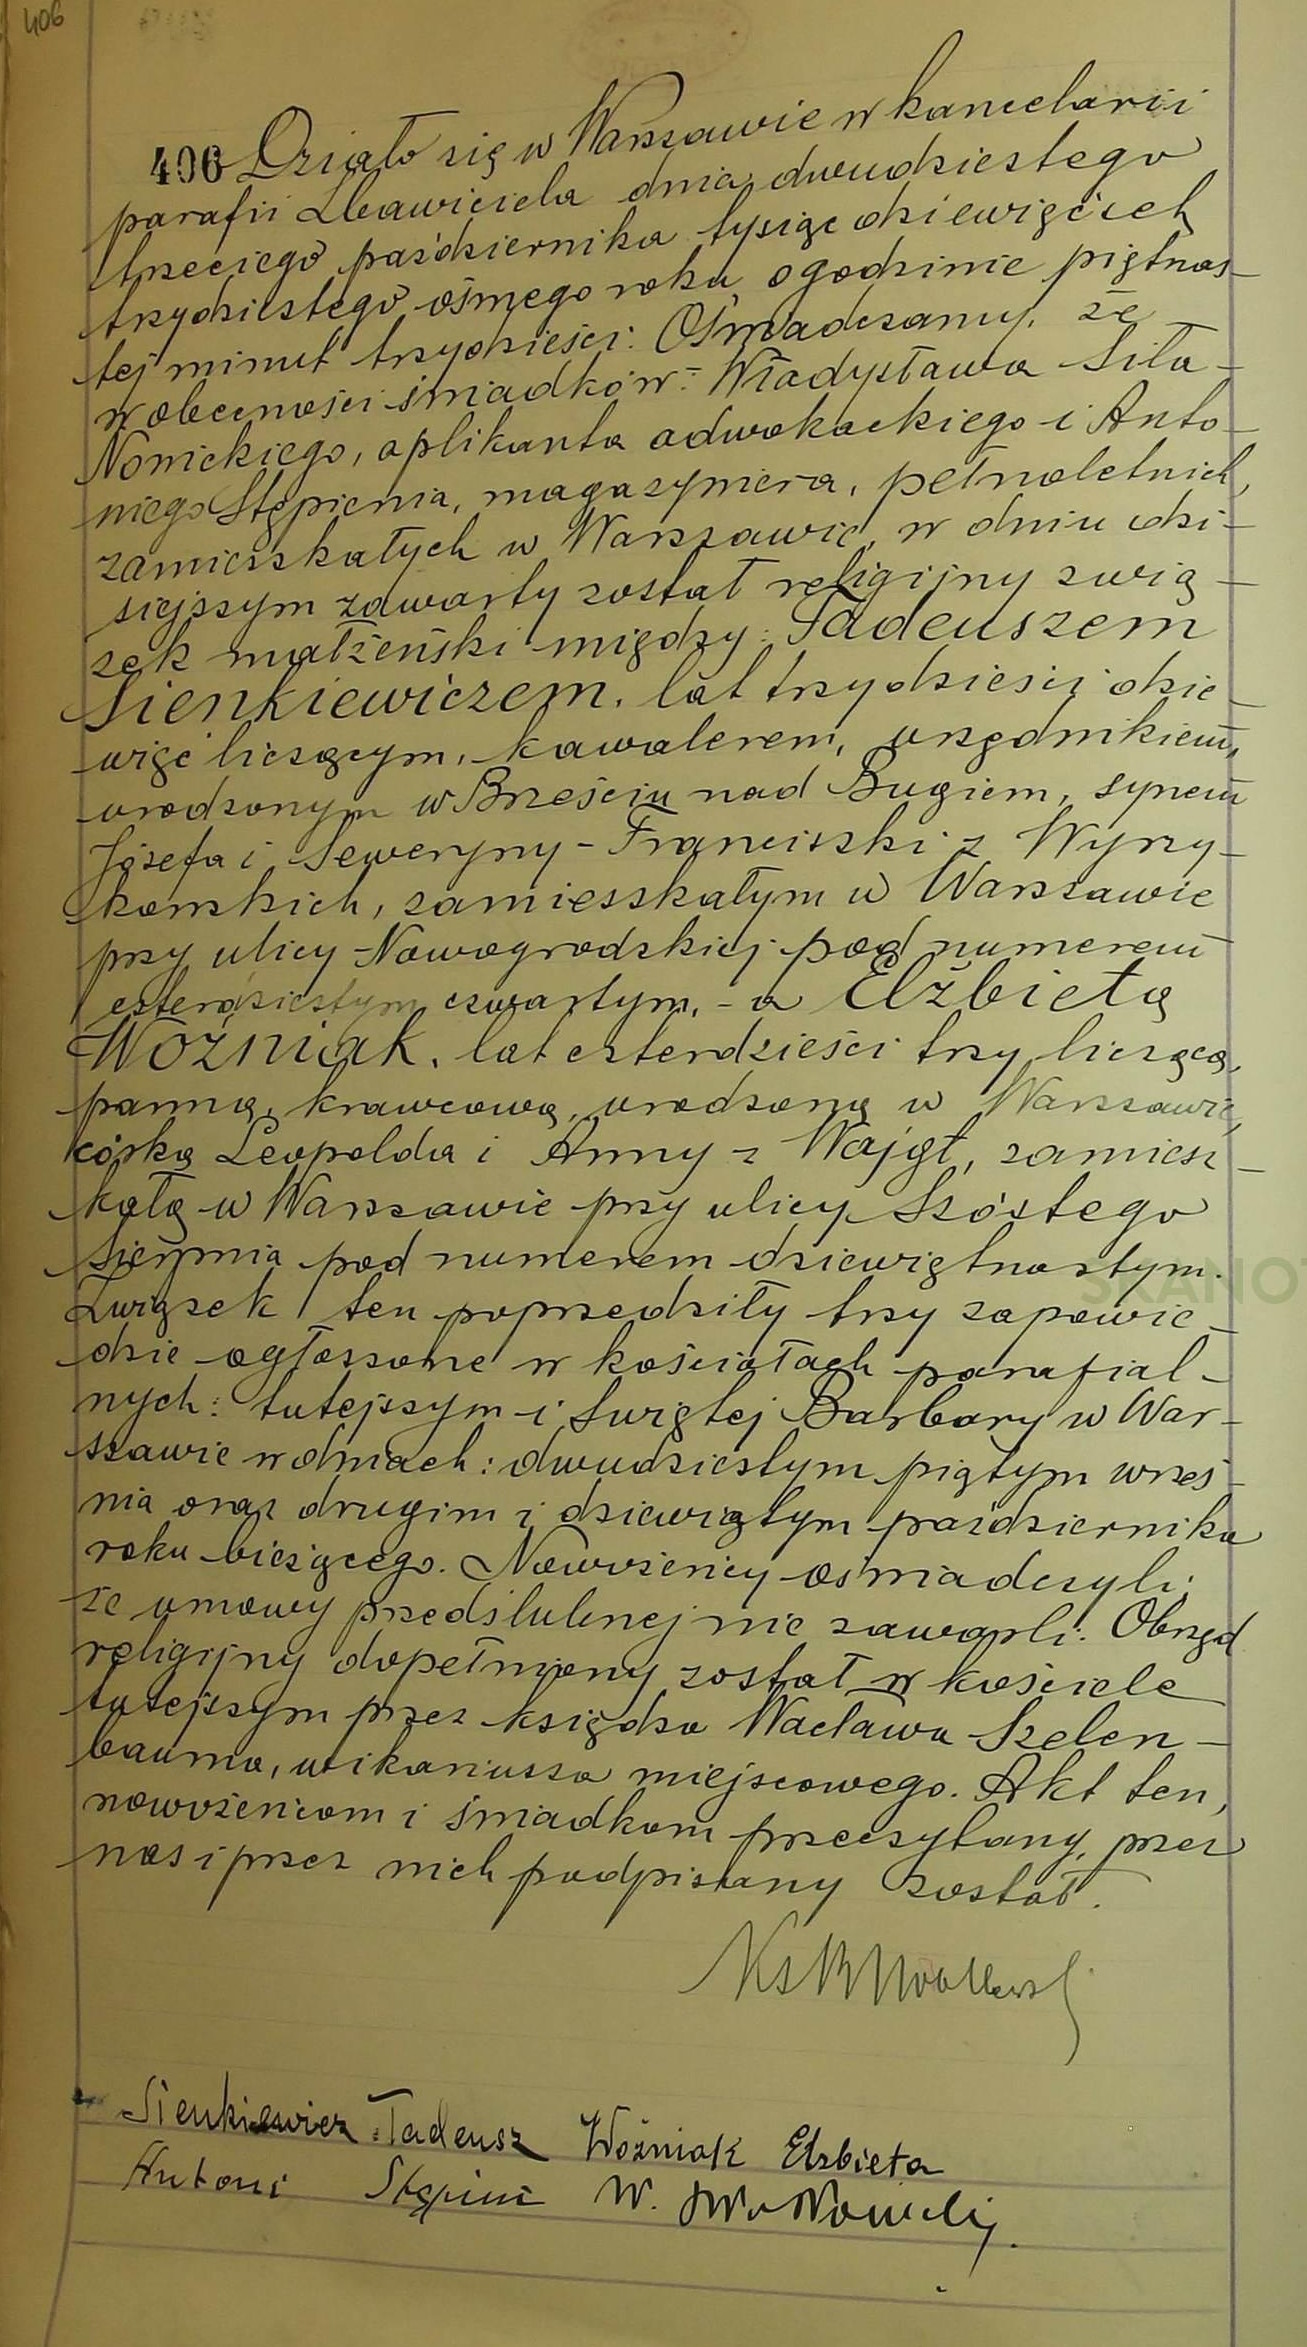 406
406 Działo się w Warszawie w kancelarii
parafii Zbawiciela dnia dwudziestego
trzeciego października tysiąc dziewięćset
trzydziestego ósmego roku, o godzinie piętnas-
tej minut trzydzieści: Oświadczamy, że
w obecności świadków: Władysława Siła-
Nowickiego, aplikanta adwokackiego i Anto-
niego Stępienia, magazyniera, pełnoletnich,
zamieszkałych w Warszawie, w dniu dzi-
siejszym zawarty został religijny zwią-
zek małżeński między: Tadeuszem
Sienkiewiczem, lat trzydzieści dzie-
więć liczącym, kawalerem, urzędnikiem,
urodzonym w Brześciu nad Bugiem, synem
Józefa i Seweryny-Franciszki z Wyrzy-
kowskich, zamieszkałym w Warszawie
przy ulicy Nowogrodzkiej pod numerem
czterdziestym czwartym, - a Elżbietą
Woźniak, lat czterdzieści trzy liczącą,
panną, krawcową, urodzoną w Warszawie,
córką Leopolda i Anny z Wajgt, zamiesz-
kałą w Warszawie przy ulicy Szóstego
Sierpnia pod numerem dziewiętnastym.
Związek ten poprzedziły trzy zapowie-
dzie ogłoszone w kościołach parafial-
nych: tutejszym i Świętej Barbary w War-
szawie w dniach: dwudziestym piątym wrześ-
nia oraz drugim i dziewiątym października
roku bieżącego. Nowożeńcy oświadczyli,
że umowy przedślubnej nie zawarli. Obrzęd
religijny dopełniony został w kościele
tutejszym przez księdza Wacława Szelen-
bauma, wikariusza miejscowego. Akt ten,
nowożeńcom i świadkom przeczytany, przez
nas i przez nich podpisany został.
Sienkiewicz Tadeusz Woźniak Elżbieta
Antoni Stępień W. Siła Nowicki
SKANO